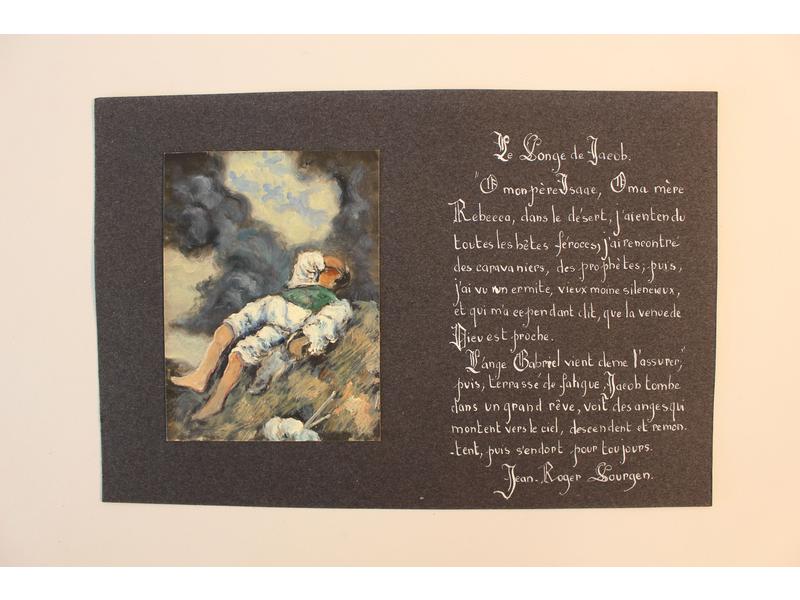 Le Songe de Jacob.
"O mon père Isaac, O ma mère
Rebecca, dans le désert, j'ai entendu
toutes les bêtes féroces, j'ai rencontré
des caravaniers, des prophètes; puis,
j'ai vu un ermite, vieux moine silencieux,
et qui m'a cependant dit, que la venue de
Dieu est proche.
L'ange Gabriel vient de me l'assurer;"
puis, terrassé de fatigue, Jacob tombe
dans un grand rêve, voit des anges qui
montent vers le ciel, descendent et remon-
-tent, puis s'endort pour toujours.
Jean-Roger Sourgen.